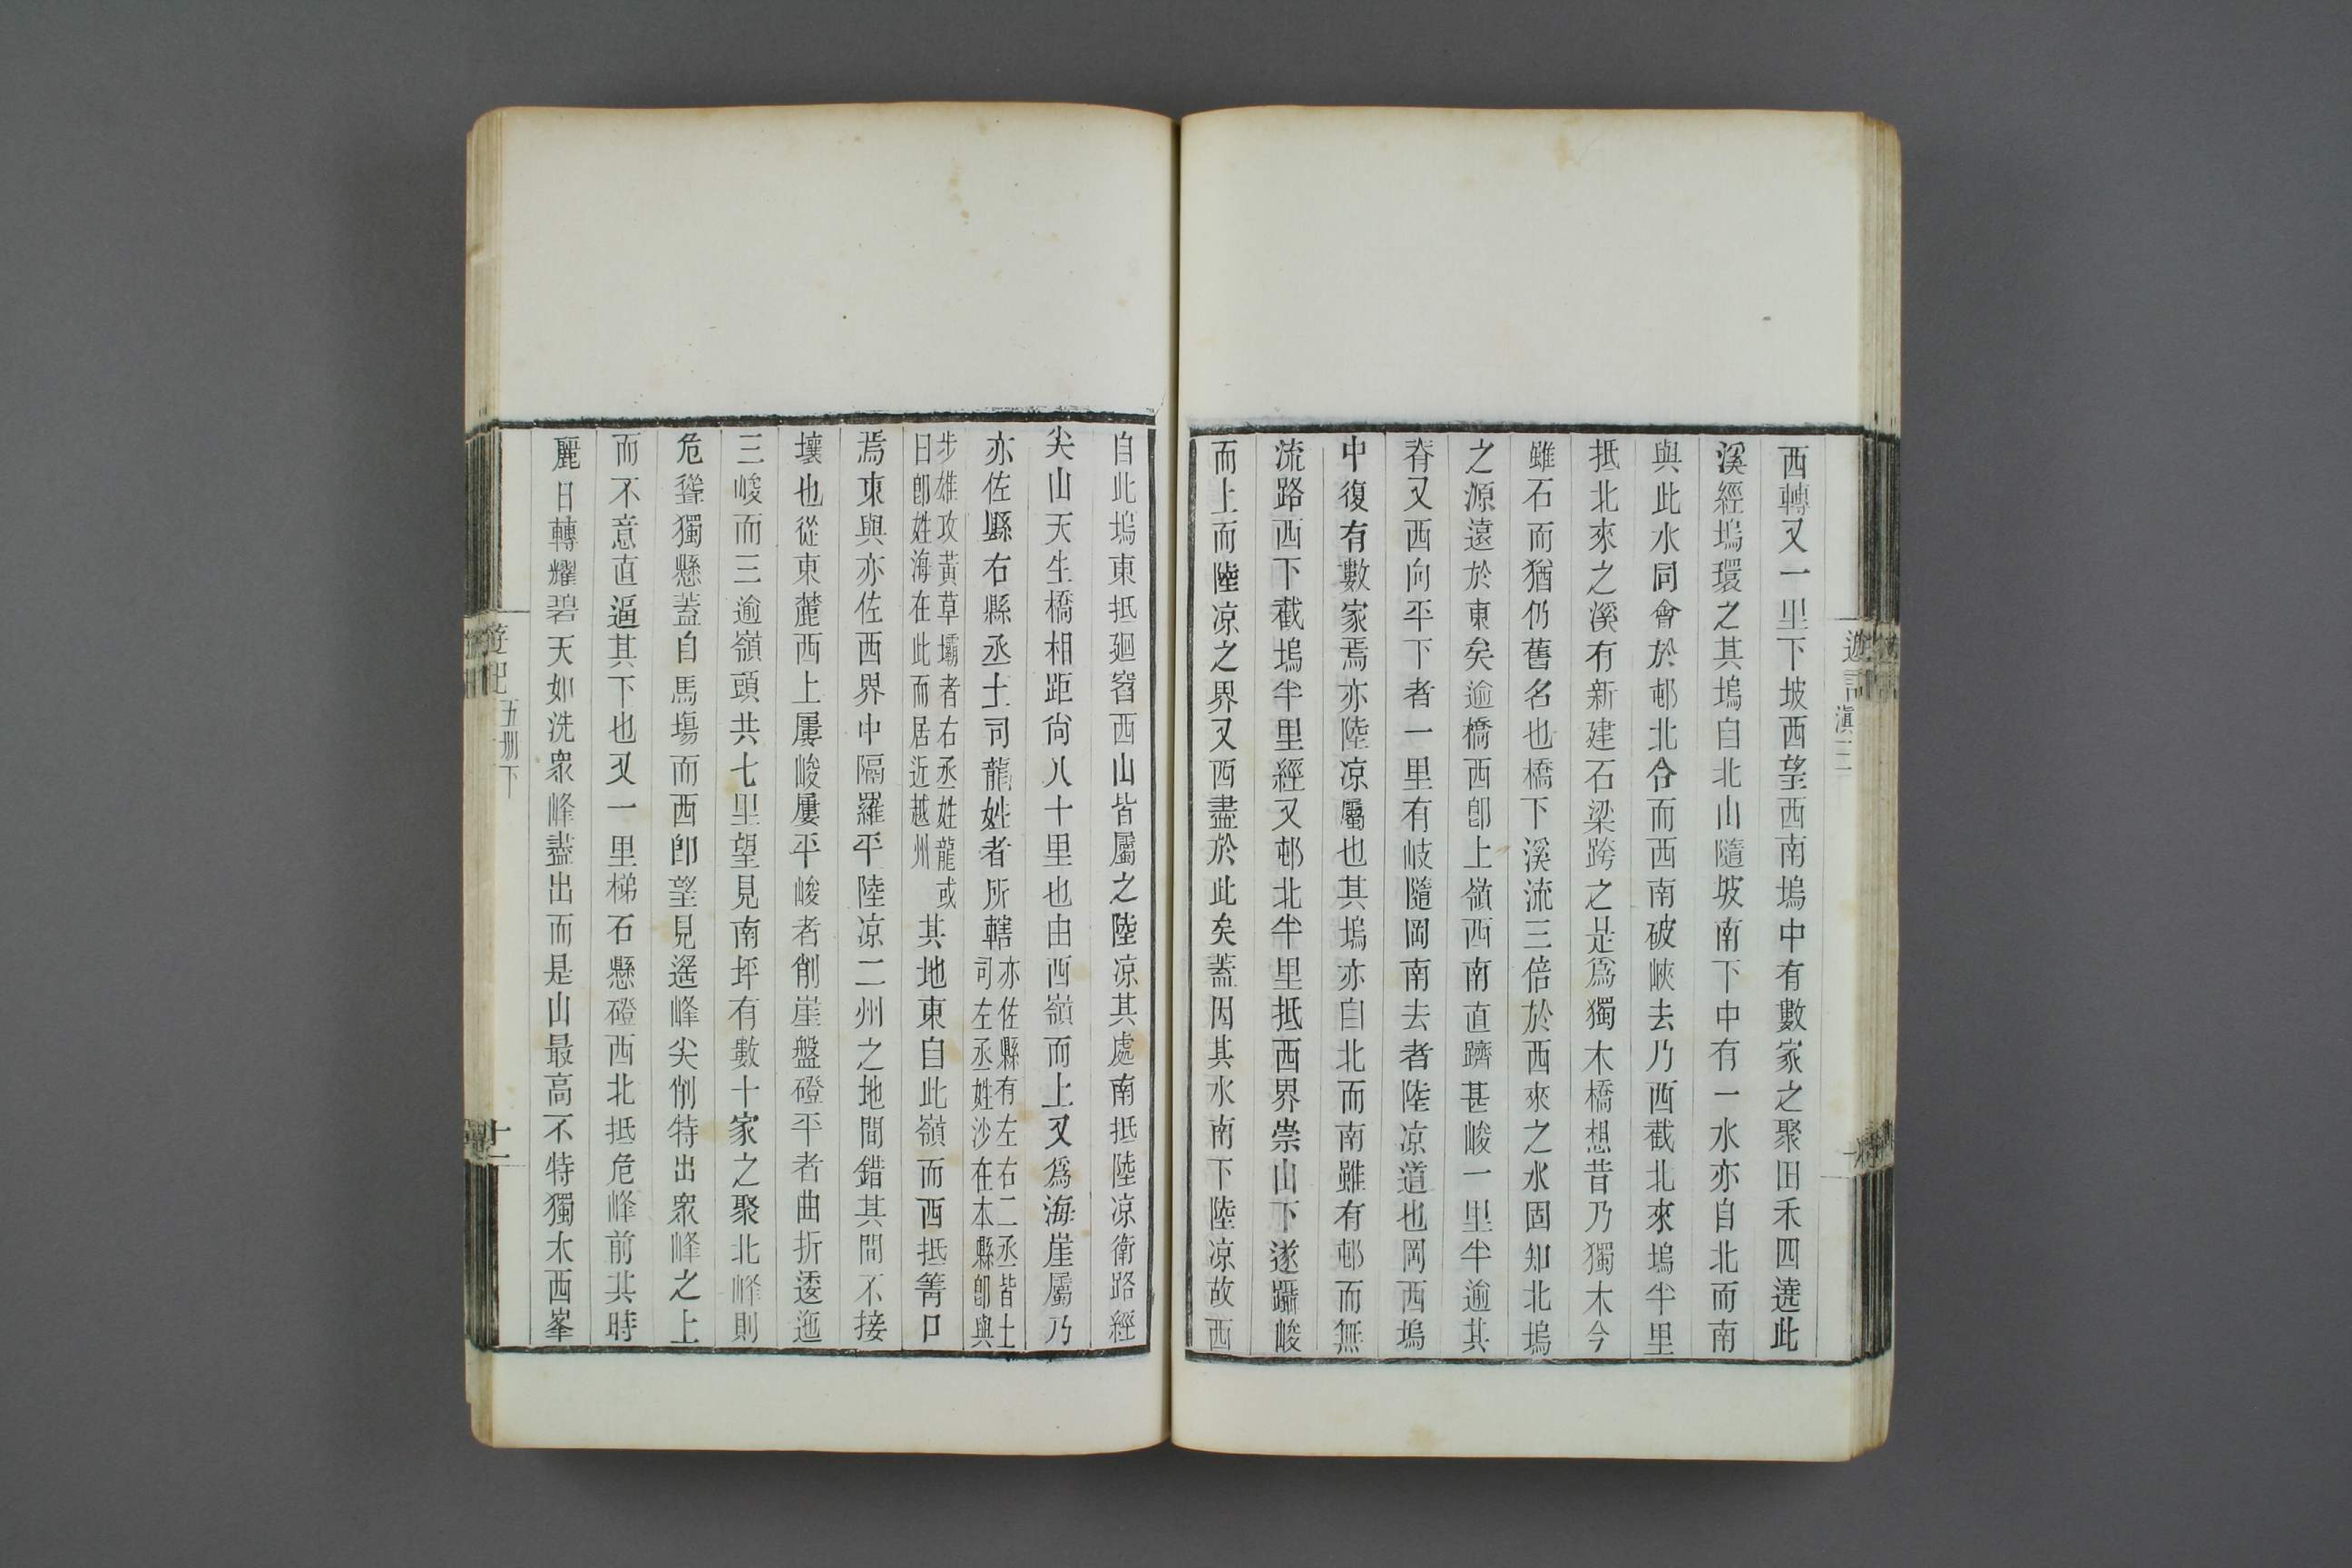 遊記
滇三
西轉又一里下坡西望西南塢中有數家之聚田禾四遶此
溪經塢環之其塢自北山隨坡南下中有一水亦自北而南
與此水同會於邨北合而西南破峽去乃西截北來塢半里
抵北來之溪有新建石梁跨之是爲獨木橋想昔乃獨木今
雖石而猶仍舊名也橋下溪流三倍於西來之水固知北塢
之源遠於東矣逾橋西卽上嶺西南直躋甚峻一里半逾其
脊又西向平下者一里有岐隨岡南去者陸凉道也岡西塢
中復有數家焉亦陸凉屬也其塢亦自北而南雖有邨而無
流路西下截塢半里經又邨北半里抵西界崇山下遂躡峻
而上而陸凉之界又西盡於此矣蓋因其水南下陸凉故西
自此塢東抵廻窞西山皆屬之陸凉其處南抵陸凉衛路經
尖山天生橋相距尙八十里也由西嶺而上又爲海崖屬乃
亦佐縣右縣丞土司龍姓者所轄亦佐縣有左右二丞皆土
司左丞姓沙在本縣卽與
步雄攻黃草壩者右丞姓龍或
日卽姓海在此而居近越州
其地東自此嶺而西抵箐口
焉東與亦佐西界中隔羅平陸凉二州之地間錯其間不接
壤也從東麓西上屢峻屢平峻者削崖盤磴平者曲折逶迤
三峻而三逾嶺頭共七里望見南坪有數十家之聚北峰則
危聳獨懸蓋自馬塲而西卽望見遙峰尖削特出眾峰之上
而不意直逼其下也又一里梯石懸磴西北抵危峰前其時
麗日轉耀碧天如洗眾峰盡出而是山最高不特獨木西峯
遊記
五册下
十一